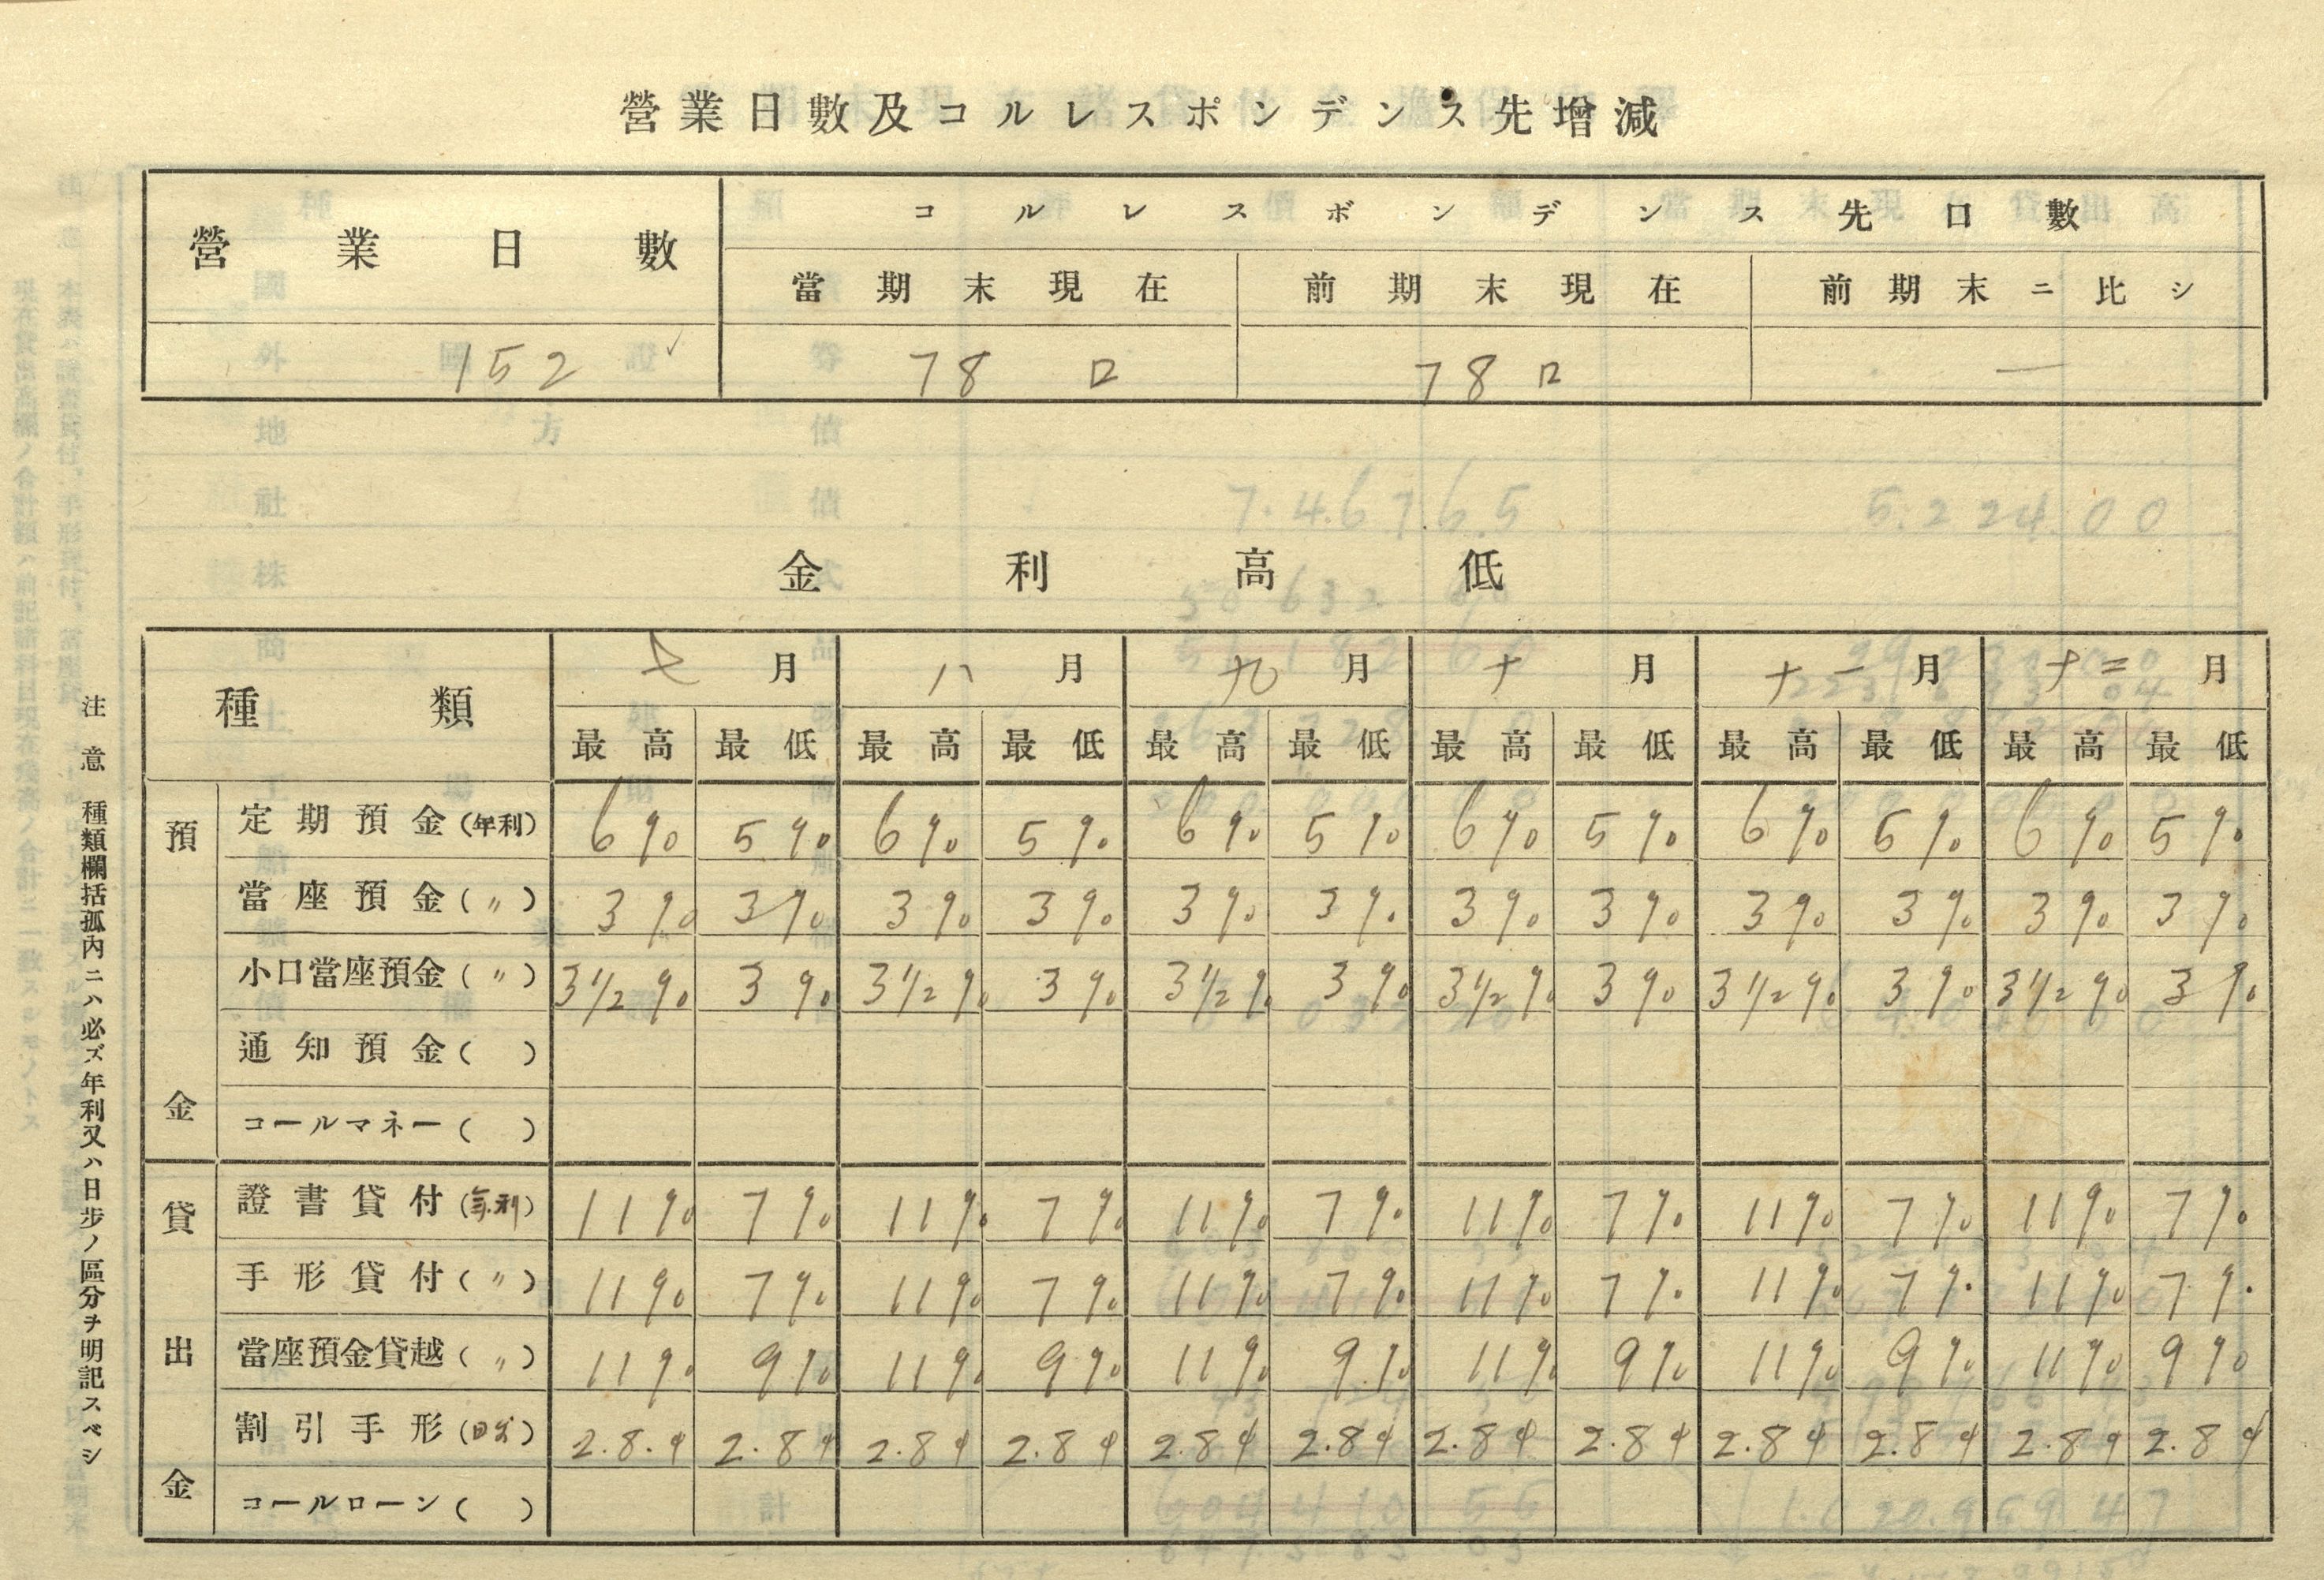 營業日數及コルレスポンデンス先增減
營業日數 コルレスポンデンス先口數
當期末現在 前期末現在 前期末ニ比シ
152 78口 78口 ―
金利高低
種類 七月 八月 九月 十月 十一月 十二月
最高 最低 最高 最低 最高 最低 最高 最低 最高 最低 最高 最低
預金
定期預金(年利) 6% 5% 6% 5% 6% 5% 6% 5% 6% 5% 6% 5%
當座預金(〃) 3% 3% 3% 3% 3% 3% 3% 3% 3% 3% 3% 3%
小口當座預金(〃) 3 1/2% 3% 3 1/2% 3% 3 1/2% 3% 3 1/2% 3% 3 1/2% 3% 3 1/2% 3%
通知預金( )
コールマネー( )
貸出金
證書貸付(年利) 11% 7% 11% 7% 11% 7% 11% 7% 11% 7% 11% 7%
手形貸付(〃) 11% 7% 11% 7% 11% 7% 11% 7% 11% 7% 11% 7%
當座預金貸越(〃) 11% 9% 11% 9% 11% 9% 11% 9% 11% 9% 11% 9%
割引手形(日歩) 2.8 2.8 2.8 2.8 2.8 2.8 2.8 2.8 2.8 2.8 2.8 2.8
コールローン( )
注意 種類欄括弧內ニハ必ズ年利又ハ日步ノ區分ヲ明記スベシ